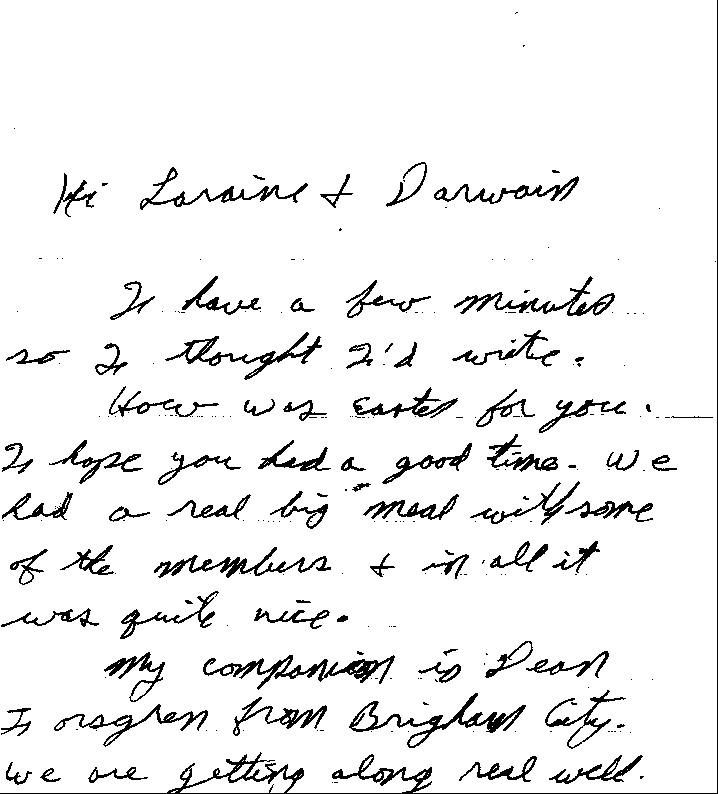 Hi Loraine & Darwain
I have a few minutes
so I thought I'd write.
How was easter for you.
I hope you had a good time. We
had a real big meal with some
of the members & in all it
was quite nice.
My companion is Dean
from Brigham City.
We are getting along real well.